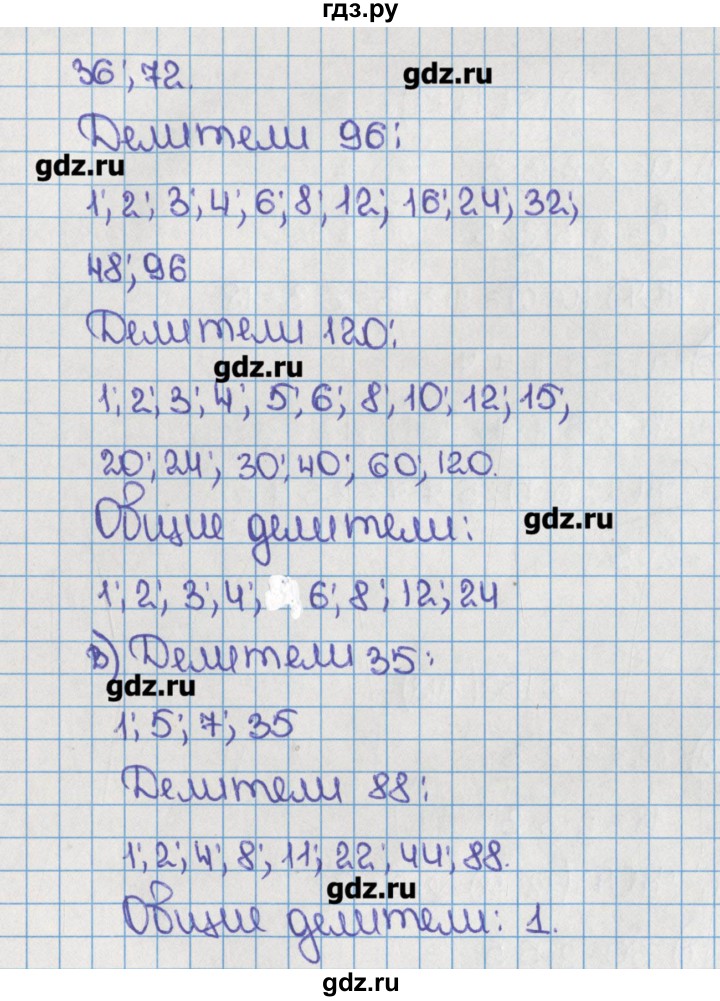 гдз.ру
36; 72.
gdz.ru
Делители 96:
gdz.ru
1; 2; 3; 4; 6; 8; 12; 16; 24; 32;
48; 96
Делители 120:
gdz.ru
1; 2; 3; 4; 5; 6; 8; 10; 12; 15;
20; 24; 30; 40; 60; 120.
Общие делители:
gdz.ru
1; 2; 3; 4; 6; 8; 12; 24
в) Делители 35:
gdz.ru
1; 5; 7; 35
Делители 88:
1; 2; 4; 8; 11; 22; 44; 88.
gdz.ru
Общие делители: 1.
gdz.ru